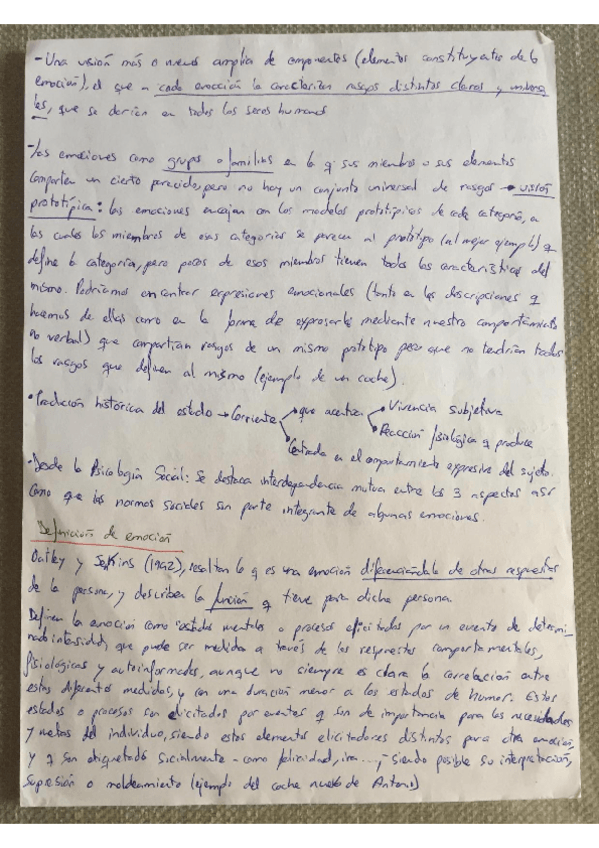 - Una visión más o menos amplia de componentes (elementos constituyentes de la
emoción), el que a cada emoción la caracterizan rasgos distintos claros y universa
les, que se darían en todos los seres humanos
- Las emociones como grupos o familias en la q sus miembros o sus elementos
comparten un cierto parecido, pero no hay un conjunto universal de rasgos → visión
prototípica: las emociones encajan con los modelos prototípicos de cada categoría, a
las cuales los miembros de esas categorías se parecen al prototipo (al mejor ejemplo) q
define la categoría, pero pocos de esos miembros tienen todas las características del
mismo. Podríamos encontrar expresiones emocionales (tanto en las descripciones q
hacemos de ellas como en la forma de expresarlas mediante nuestro comportamiento
no verbal) que compartirían rasgos de un mismo prototipo pero que no tendrían todos
los rasgos que definen al mismo (ejemplo de un coche).
• Tradición histórica del estudio → Corriente que acentúa Vivencia subjetiva
Reacción fisiológica q produce
Centrada en el comportamiento expresivo del sujeto.
• Desde la Psicología Social: Se destaca interdependencia mutua entre los 3 aspectos así
como que las normas sociales son parte integrante de algunas emociones.
Definición de emoción
Oatley y Jenkins (1992), resaltan lo q es una emoción diferenciándola de otras respuestas
de la persona, y describen la función q tiene para dicha persona.
Definen la emoción como "estados mentales o procesos elicitados por un evento de determi-
nada intensidad, que puede ser medida a través de las respuestas comportamentales,
fisiológicas y autoinformadas, aunque no siempre es clara la correlación entre
estas diferentes medidas, y con una duración menor a los estados de humor. Estos
estados o procesos son elicitados por eventos q son de importancia para las necesidades
y metas del individuo, siendo estos elementos elicitadores distintos para cada emoción,
y q son etiquetados socialmente - como felicidad, ira...,- siendo posible su interpretación,
supresión o moldeamiento (ejemplo del coche nuevo de Antonio)